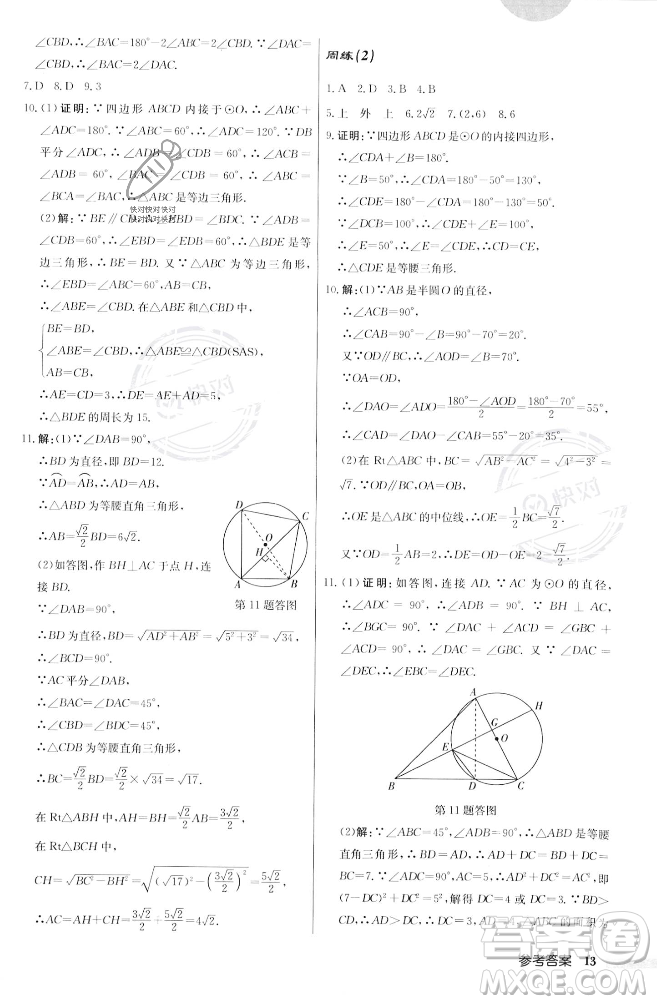 ∠CBD, ∴∠BAC=180°-2∠ACB=180°-2∠CBD=
2∠CBD.
7.D 8.D 9.3
10.(1)证明:∵四边形 ABCD 内接于⊙O,∴∠ABC+
∠ADC=180°. ∵∠ABC=60°,∴∠ADC=120°. ∵DB
平分∠ADC,∴∠ADB=∠CDB=60°. ∴∠ACB=
∠ADB=60°,∠BAC=∠CDB=60°. ∴∠ABC=
∠BCA=∠BAC. ∴△ABC 是等边三角形.
(2)解:∵BE∥CD,∴∠EBD=∠BDC=60°. ∵
∠ADB=60°,∴∠EBD=∠EDB=60°. ∴△EBD 是等
边三角形. ∴BE=BD. ∵△ABC 是等边三角形,
∴∠EBD=∠ABC=60°,AB=BC.
∴∠ABE=∠CBD. 在△ABE 和△CBD 中,
BE=BD,
∠ABE=∠CBD,∴△ABE≌△CBD(SAS).
AB=CB,
∴AE=CD=3. ∴DE=AE+AD=5.
∴△BDE 的周长为 15.
11.解:(1)∵∠DAB=90°,
∴BD 为直径,即 BD=12.
∵AD=AB,∴AD=AB.
∴△ABD 为等腰直角三角形.
∴AB=√2/2 BD=6√2.
(2)如答图,作 BH⊥AC 于点 H,连
接 BD.
∵∠DAB=90°,
∴BD 为直径,BD=√(AD²+AB²)=√(5²+3²)=√34,
∴∠BCD=90°.
∵AC 平分∠DAB,
∴∠BAC=∠DAC=45°,
∴∠CBD=∠DAC=45°.
∴△CDB 为等腰直角三角形,
∴BC=√2/2 BD=√2/2×√34=√17.
在 Rt△ABH 中,AH=BH=√2/2 AB=3√2/2,
在 Rt△BCH 中,
CH=√(BC²-BH²)=√((√17)²-(3√2/2)²)=5√2/2,
∴AC=AH+CH=3√2/2+5√2/2=4√2.
D
C
O
H
A
B
第 11 题答图
周练(2)
1.A 2.D 3.B 4.B
5.上 外 上 6.2√2 7.(2,6) 8.6
9.证明:∵四边形 ABCD 是⊙O 的内接四边形,
∴∠CDA+∠B=180°.
∵∠CDA+∠CDE=180°,
∴∠CDE=∠B=60°.
∵∠E+∠CDE+∠DCE=180°,
∴∠E=60°. ∴∠CDE=∠E.
∴△CDE 是等腰三角形.
10.解:(1)∵AB 是半圆O 的直径,
∴∠ACB=90°,
∴∠CAB=90°-∠B=90°-70°=20°.
又∵OD∥BC,∴∠AOD=∠B=70°.
∵OD=OA,
∴∠DAO=∠ADO=(180°-∠AOD)/2=(180°-70°)/2=55°,
∴∠CAD=∠DAO-∠CAB=35°.
(2)在 Rt△ABC 中,BC=√(AB²-AC²)=√(4²-3²)=
√7. ∵OD∥BC,O 是 AB 的中点,
∴OE 是△ABC 的中位线,∴OE=1/2 BC=√7/2.
又∵OD=1/2 AB=2,∴DE=OD-OE=2-√7/2.
11.(1)证明:如答图,连接 AD. ∵AC 为⊙O 的直径,
∴∠ADC=90°. ∴∠DAC+∠ACD=90°. ∵BH⊥AC,
∴∠BGC=90°. ∴∠GBC+∠GCB=90°.
∴∠EBC=∠DAC. 又∵∠DEC=∠DAC,∴∠EBC=
∠DEC,∴∠EBC=∠DEC.
A
H
G
E
O
B
D
C
第 11 题答图
(2)解:∵∠ABC=45°,∠ADB=90°,∴△ABD 是等腰
直角三角形. ∴BD=AD,∴AD+CD=BD+DC=
BC=7. ∵AC=5,在 Rt△ADC 中,AD²+DC²=AC²,即
(7-DC)²+DC²=5²,解得 DC=3 或 DC=4. ∵BD>
CD,∴AD>DC. ∴DC=3,AD=4. ∴△ABC 的面积为
参考答案 13
快对快对快对
快对
答案圈